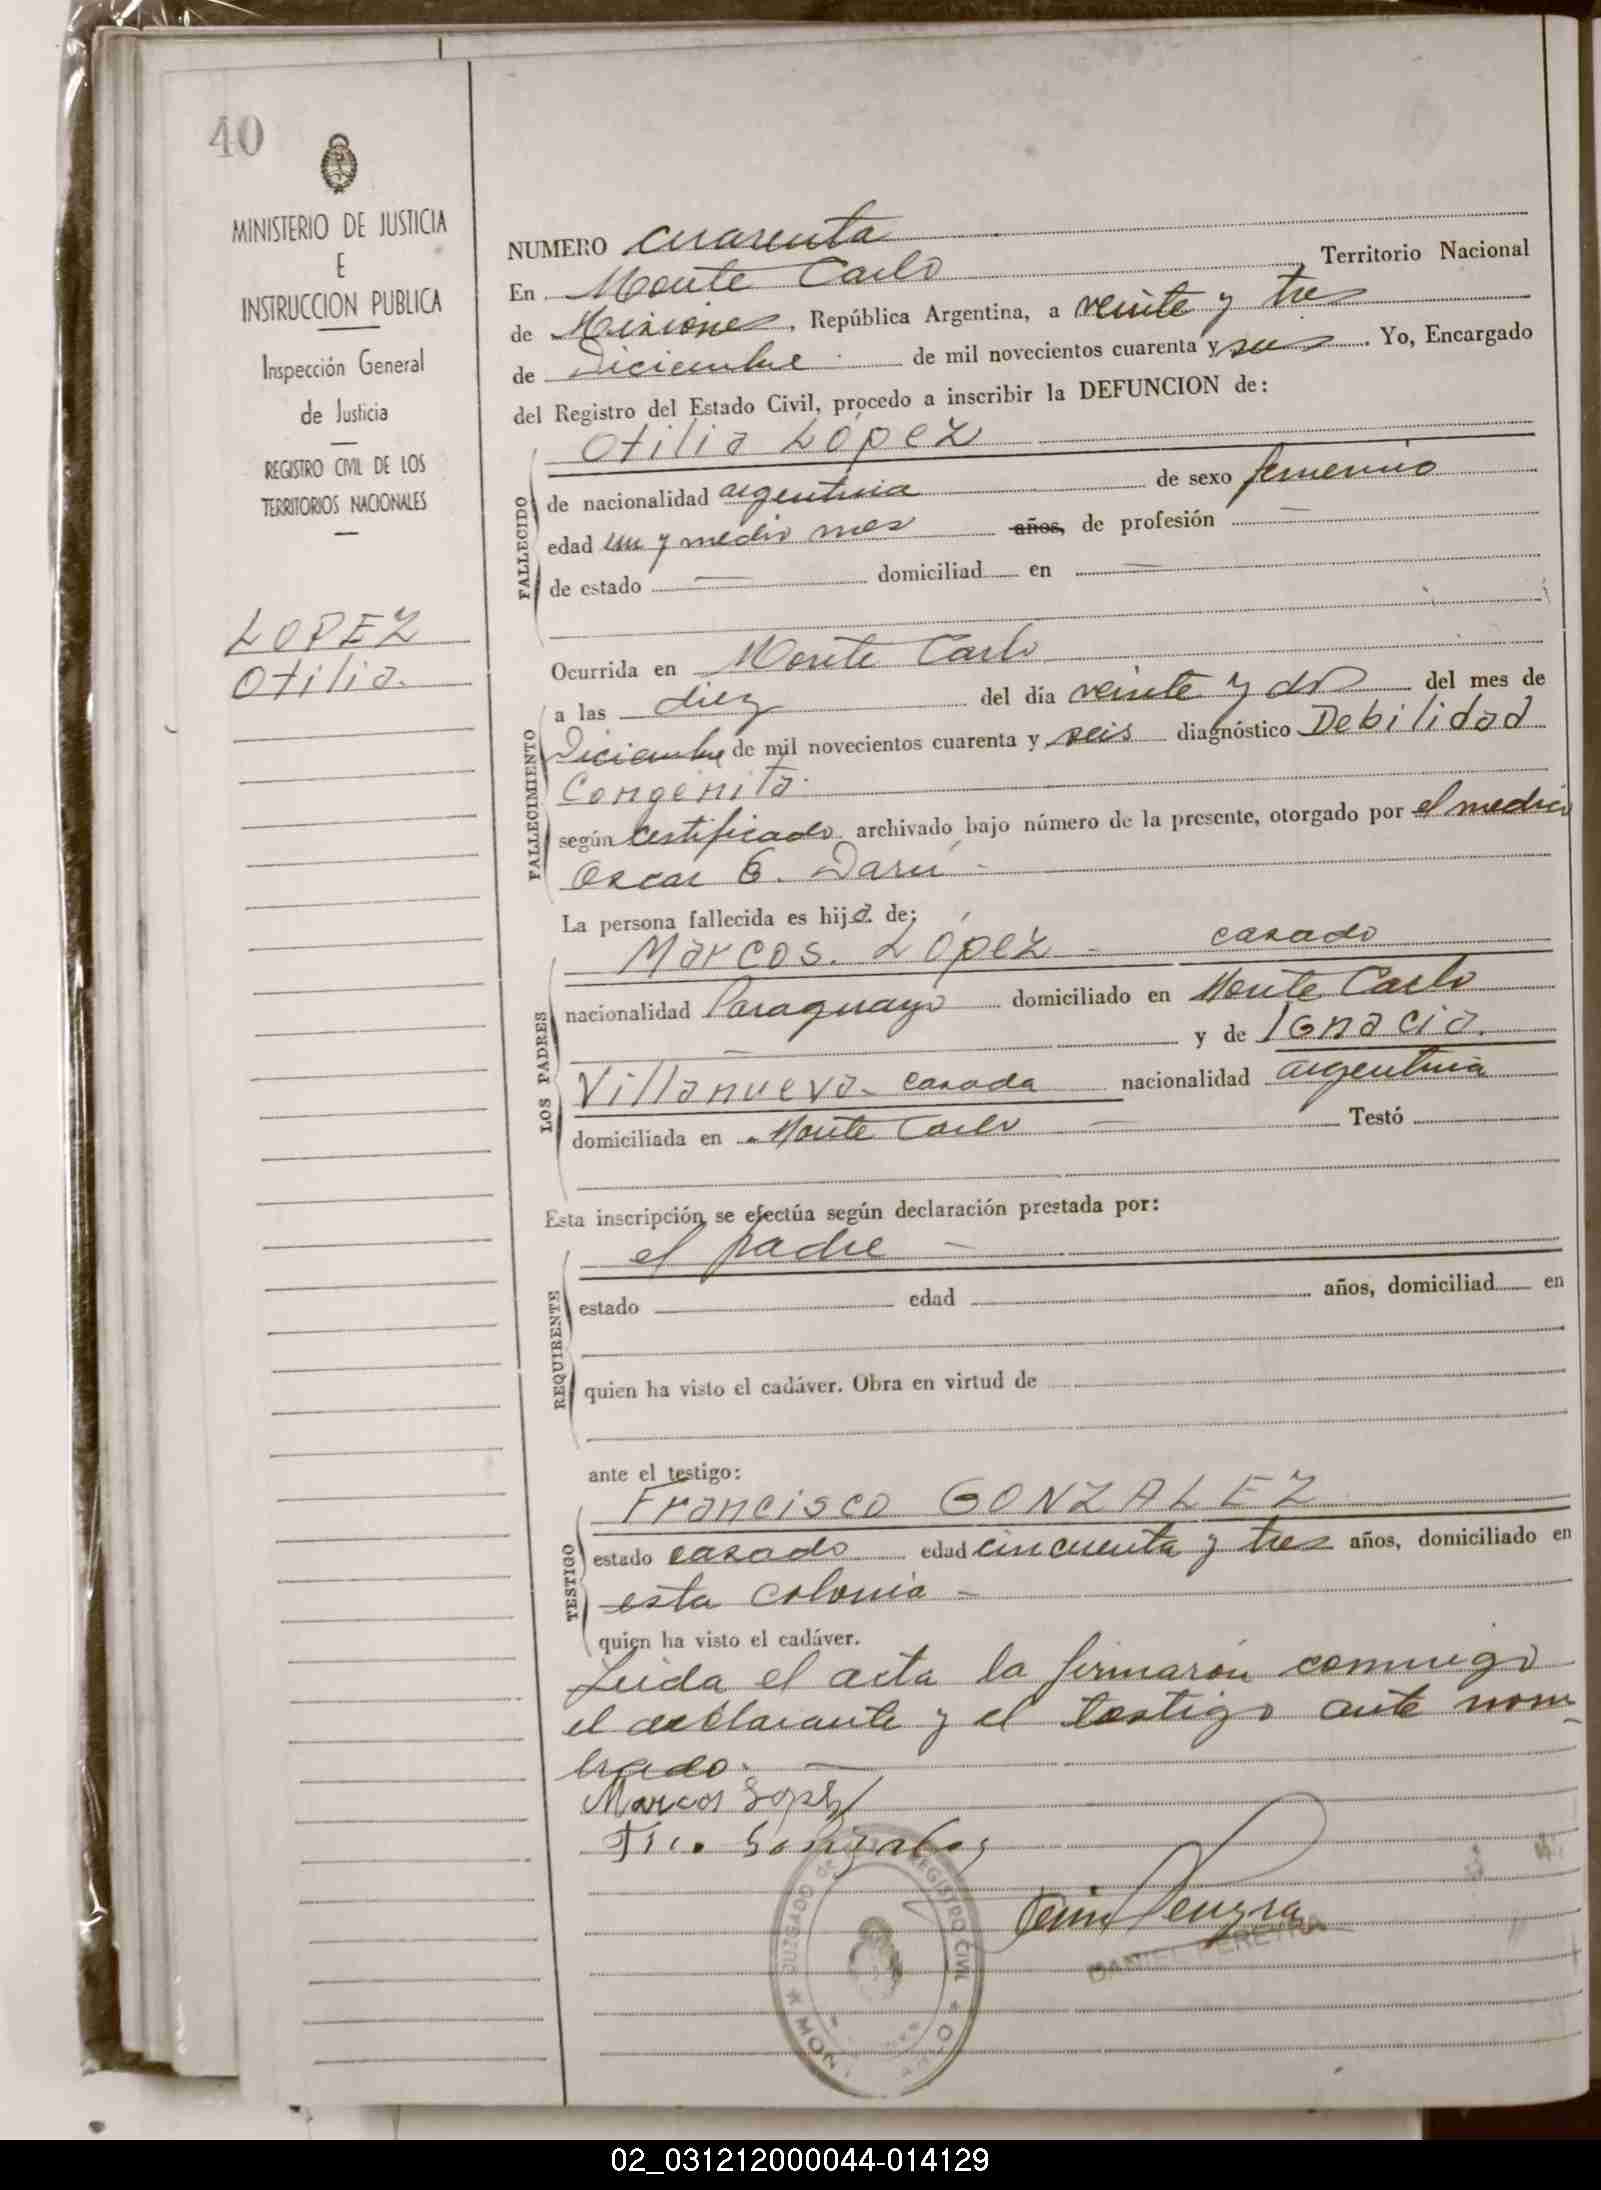 40
MINISTERIO DE JUSTICIA
E
INSTRUCCION PUBLICA
Inspección General
de Justicia
REGISTRO CIVIL DE LOS
TERRITORIOS NACIONALES
LOPEZ
Otilia.
NUMERO cuarenta
En Monte Carlo Territorio Nacional
de Misiones, República Argentina, a veinte y tres
de Diciembre de mil novecientos cuarenta y seis. Yo, Encargado
del Registro del Estado Civil, procedo a inscribir la DEFUNCION de:
Otilia López
FALLECIDO
de nacionalidad argentina de sexo femenino
edad un y medio mes años, de profesión —
de estado — domiciliad en —
Ocurrida en Monte Carlo
a las diez del día veinte y dos del mes de
FALLECIMIENTO
Diciembre de mil novecientos cuarenta y seis diagnóstico Debilidad
Congénita.
según certificado archivado bajo número de la presente, otorgado por el medico
Oscar E. Darú -
La persona fallecida es hija de:
Marcos. López - casado
LOS PADRES
nacionalidad Paraguayo domiciliado en Monte Carlo
— y de Ignacia.
Villanueva - casada nacionalidad argentina
domiciliada en Monte Carlo — Testó
Esta inscripción se efectúa según declaración prestada por:
el padre —
REQUIRENTE
estado edad años, domiciliad en
quien ha visto el cadáver. Obra en virtud de
ante el testigo:
Francisco GONZALEZ
TESTIGO
estado casado edad cincuenta y tres años, domiciliado en
esta colonia —
quien ha visto el cadáver.
Leida el acta la firmarón conmigo
el declarante y el testigo ante nom-
brado. —
Marcos Lopez
Fco. Gonzalez
JUZGADO DE REGISTRO CIVIL
DANIEL PEREYRA
02_031212000044-014129